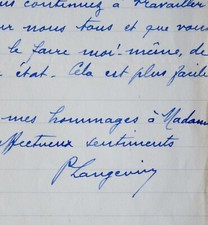 us continuez à travailler
ur nous tous et que vous
le faire moi-même, de
état. Cela est plus facile
mes hommages à Madam
affectueux sentiments
P Langevin